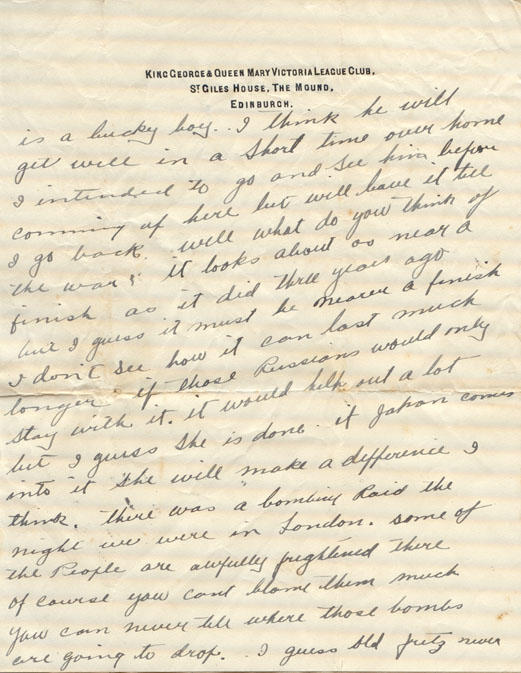 KING GEORGE & QUEEN MARY VICTORIA LEAGUE CLUB,
ST GILES HOUSE, THE MOUND,
EDINBURGH.
is a lucky boy.. I think he will
get well in a short time over home
I intended to go and see him before
comming up here but will leave it till
I go back. well what do you think of
the war? it looks about as near a
finish as it did three years ago
but I guess it must be nearer a finish
I don't see how it can last much
longer if those Russians would only
stay with it. it would help out a lot
but I guess she is done. if Japan comes
into it she will make a difference I
think. there was a bombing Raid the
night we were in London. some of
the People are awfully frightened there
of course you cant blame them much
you can never tell where those bombs
are going to drop. I guess old fritz never